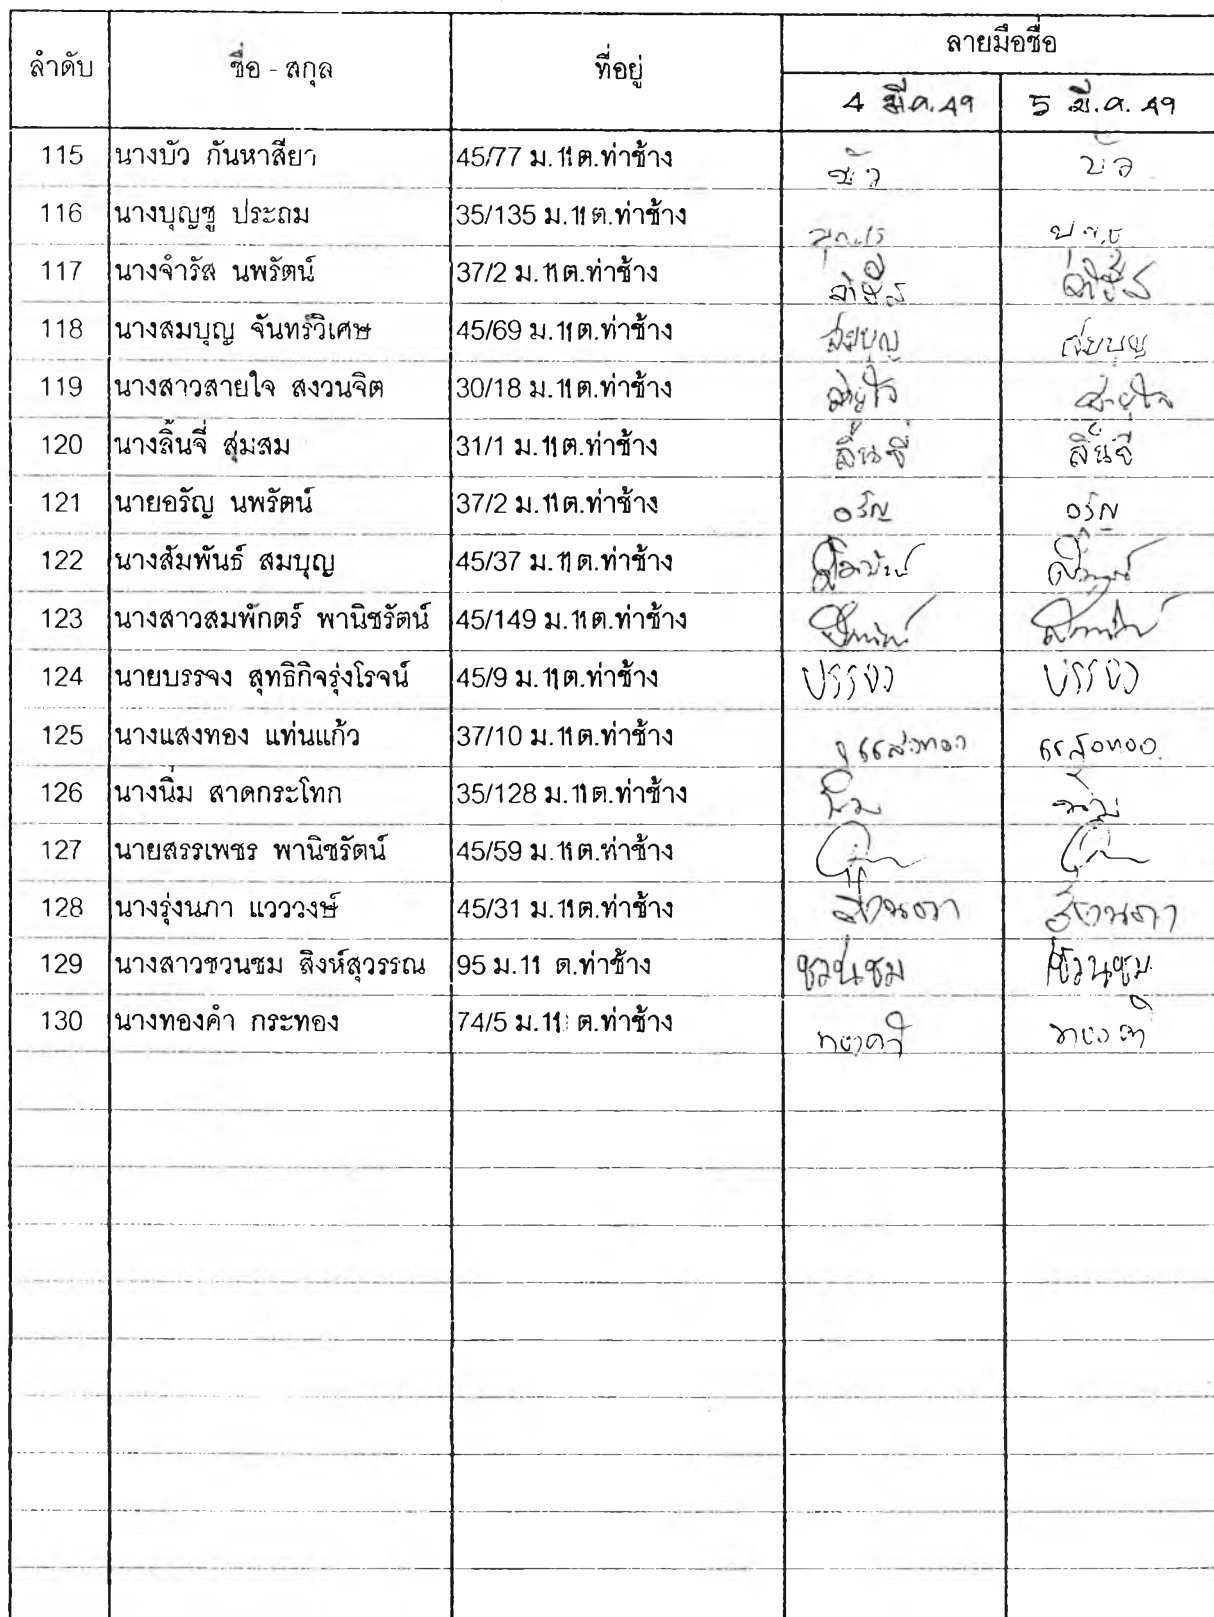 ลำดับ ชื่อ - สกุล ที่อยู่ ลายมือชื่อ
4 มี.ค. 49 5 มี.ค. 49
115 นางบัว กันหาสียา 45/77 ม.11 ต.ท่าช้าง บัว บัว
116 นางบุญชู ประถม 35/135 ม.11 ต.ท่าช้าง บุญชู
117 นางจำรัส นพรัตน์ 37/2 ม.11 ต.ท่าช้าง จำรัส จำรัส
118 นางสมบุญ จันทร์วิเศษ 45/69 ม.11 ต.ท่าช้าง สมบุญ สมบุญ
119 นางสาวสายใจ สงวนจิต 30/18 ม.11 ต.ท่าช้าง สายใจ สายใจ
120 นางลิ้นจี่ สุ่มสม 31/1 ม.11 ต.ท่าช้าง ลิ้นจี่ ลิ้นจี่
121 นายอรัญ นพรัตน์ 37/2 ม.11 ต.ท่าช้าง อรัญ อรัญ
122 นางสัมพันธ์ สมบุญ 45/37 ม.11 ต.ท่าช้าง
123 นางสาวสมพักตร์ พานิชรัตน์ 45/149 ม.11 ต.ท่าช้าง
124 นายบรรจง สุทธิกิจรุ่งโรจน์ 45/9 ม.11 ต.ท่าช้าง บรรจง บรรจง
125 นางแสงทอง แท่นแก้ว 37/10 ม.11 ต.ท่าช้าง แสงทอง แสงทอง
126 นางนิ่ม สาดกระโทก 35/128 ม.11 ต.ท่าช้าง นิ่ม นิ่ม
127 นายสรรเพชร พานิชรัตน์ 45/59 ม.11 ต.ท่าช้าง
128 นางรุ่งนภา แวววงษ์ 45/31 ม.11 ต.ท่าช้าง รุ่งนภา รุ่งนภา
129 นางสาวชวนชม สิงห์สุวรรณ 95 ม.11 ต.ท่าช้าง ชวนชม ชวนชม
130 นางทองคำ กระทอง 74/5 ม.11 ต.ท่าช้าง ทองคำ ทองคำ